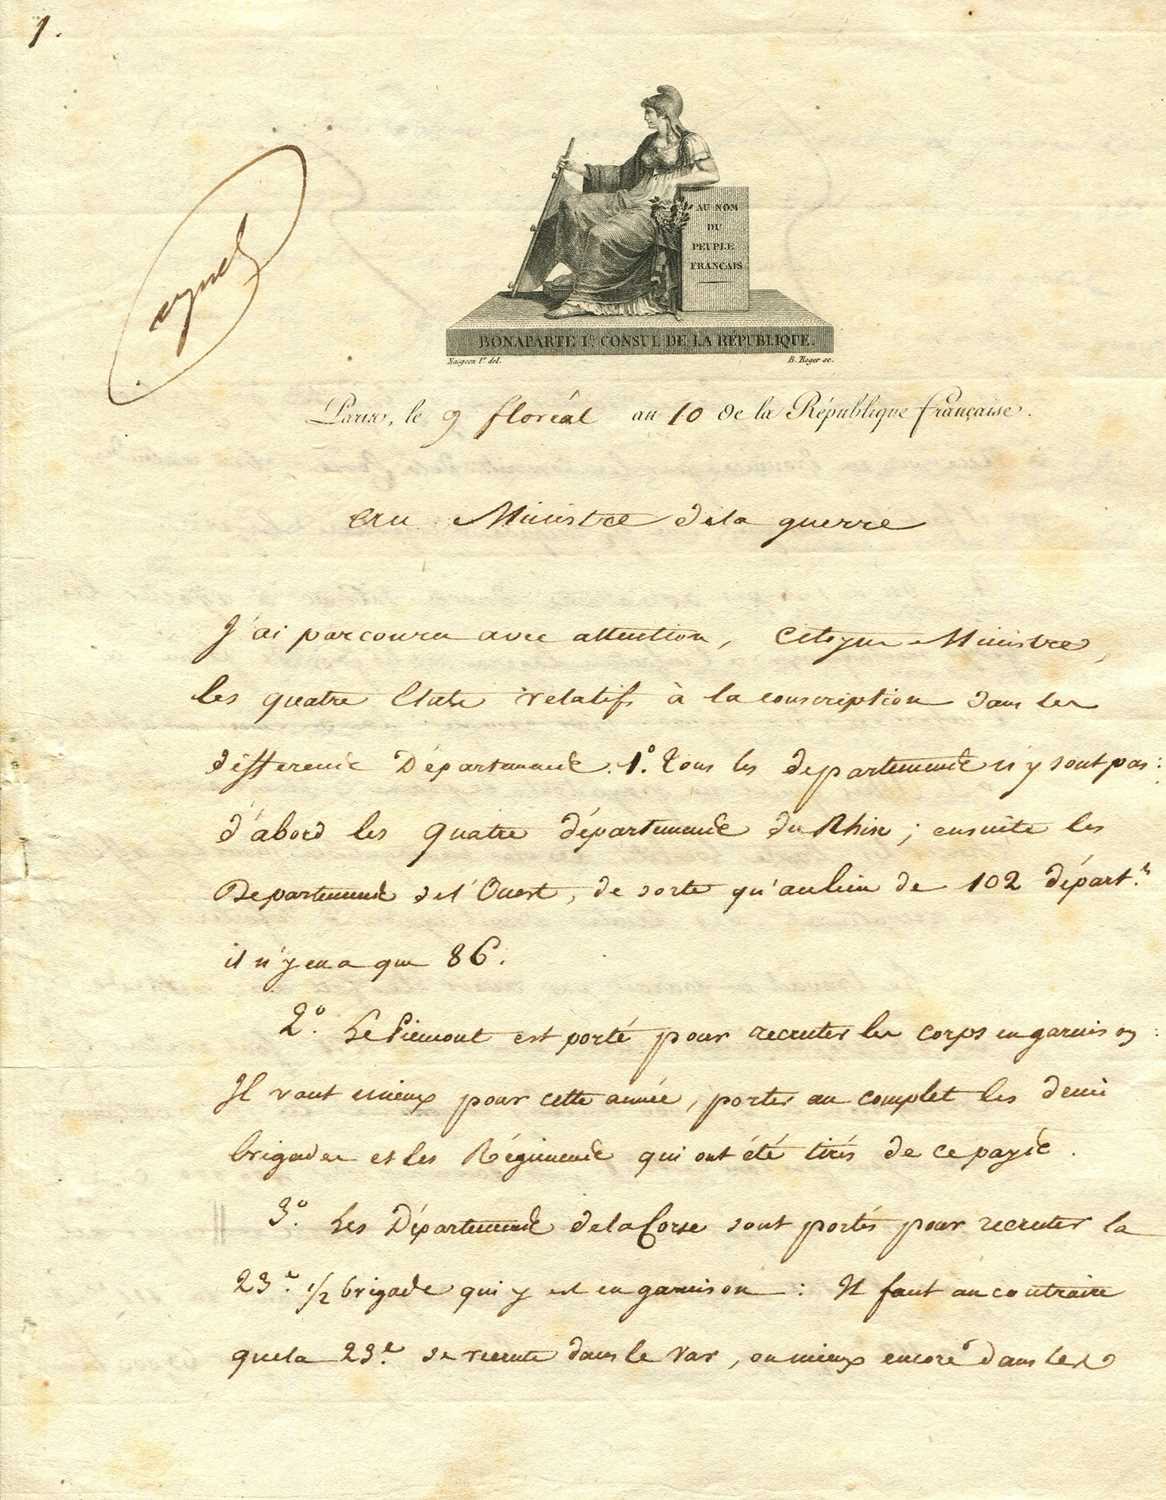 1.
AU NOM
DU
PEUPLE
FRANÇAIS
BONAPARTE Ier CONSUL DE LA RÉPUBLIQUE.
Naigeon Je del.
B. Roger sc.
Paris, le 9 floréal an 10 de la République française.
Au Ministre de la guerre
J'ai parcouru avec attention, Citoyen Ministre,
les quatre Etats relatifs à la conscription dans les
differents Départements. 1º. Tous les departements n'y sont pas:
d'abord les quatre départements du Rhin; ensuite les
Departements de l'Ouest, de sorte qu'au lieu de 102 départ.ts
il n'y en a que 86.
2º. Le Piemont est porté pour recruter les corps en garnison:
Il vaut mieux pour cette année, porter au complet les demi
brigades et les Régiments qui ont été tirés de ce pays.
3º. Les Départements de la Corse sont portés pour recruter la
23e. 1/2 brigade qui y est en garnison: Il faut au contraire
que la 23e. se recrute dans le Var, ou mieux encore dans les